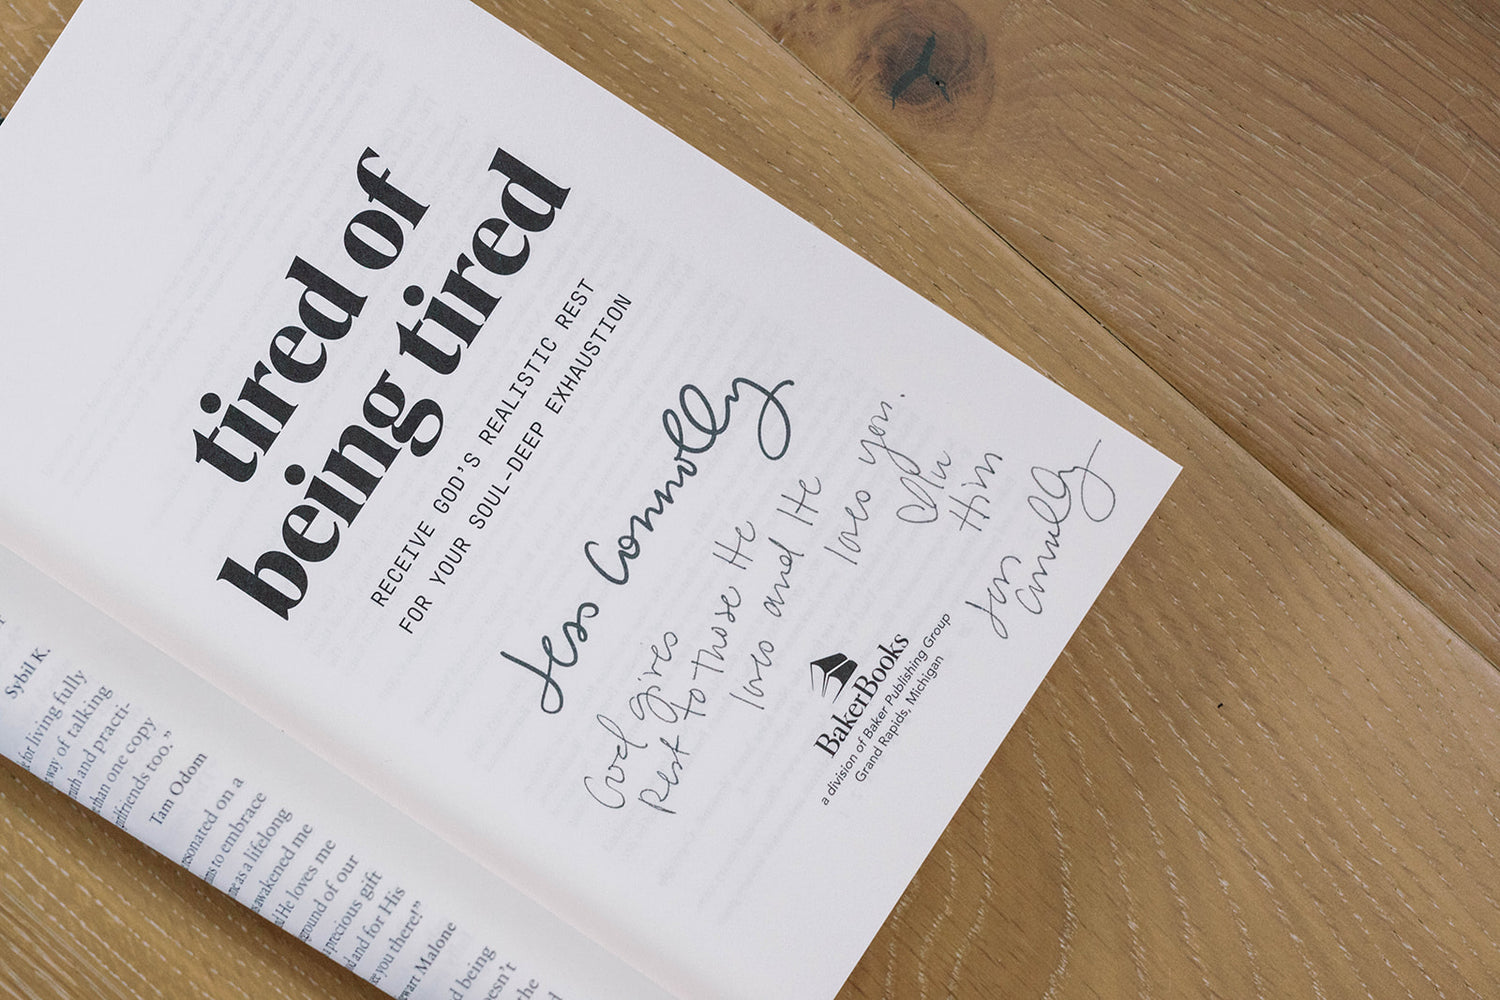 tired of
being tired
RECEIVE GOD'S REALISTIC REST
FOR YOUR SOUL-DEEP EXHAUSTION
Jess Connolly
God gives
Rest to those He
loves and He
loves you.
In
Him
Jess
Connolly
BakerBooks
a division of Baker Publishing Group
Grand Rapids, Michigan
Sybil K.
for living fully
way of talking
and practi-
than one copy
girlfriends too."
Tam Odom
on a
to embrace
as a lifelong
awakened me
He loves me
of our
precious gift
and for His
you there!"
Malone
being
the